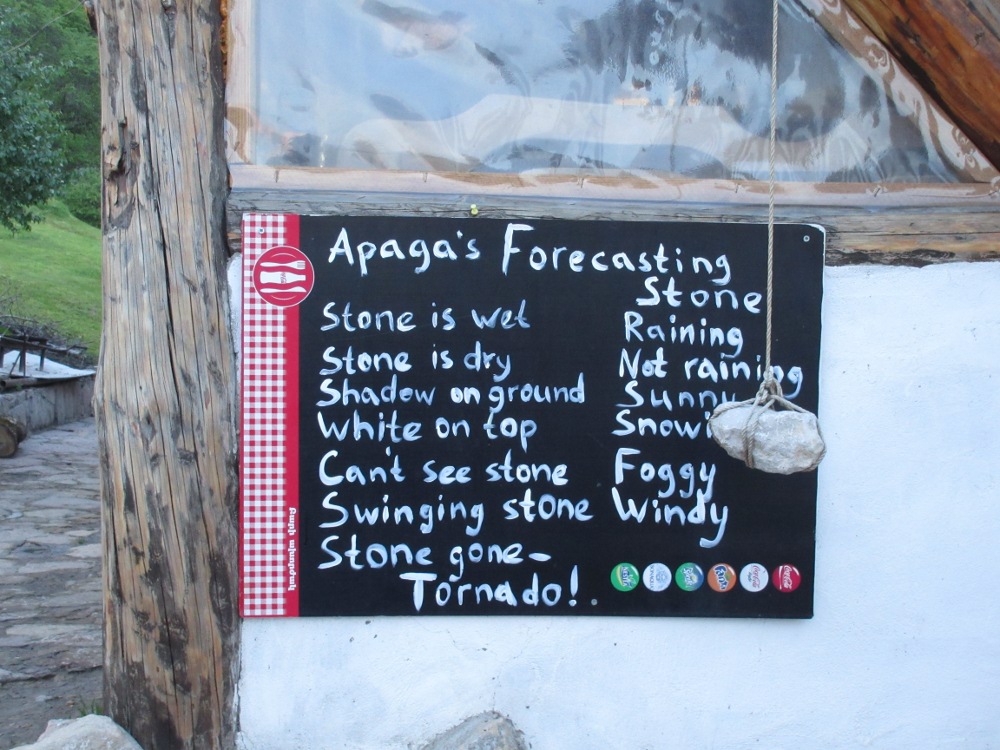 Apaga's Forecasting
Stone
Stone is wet Raining
Stone is dry Not raining
Shadow on ground Sunny
White on top
Can't see stone Foggy
Swinging stone Windy
Stone gone-
Tornado!